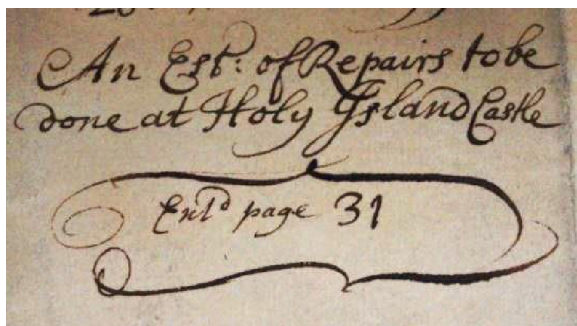 An Est: of Repairs to be
done at Holy Island Castle
Entd page 31